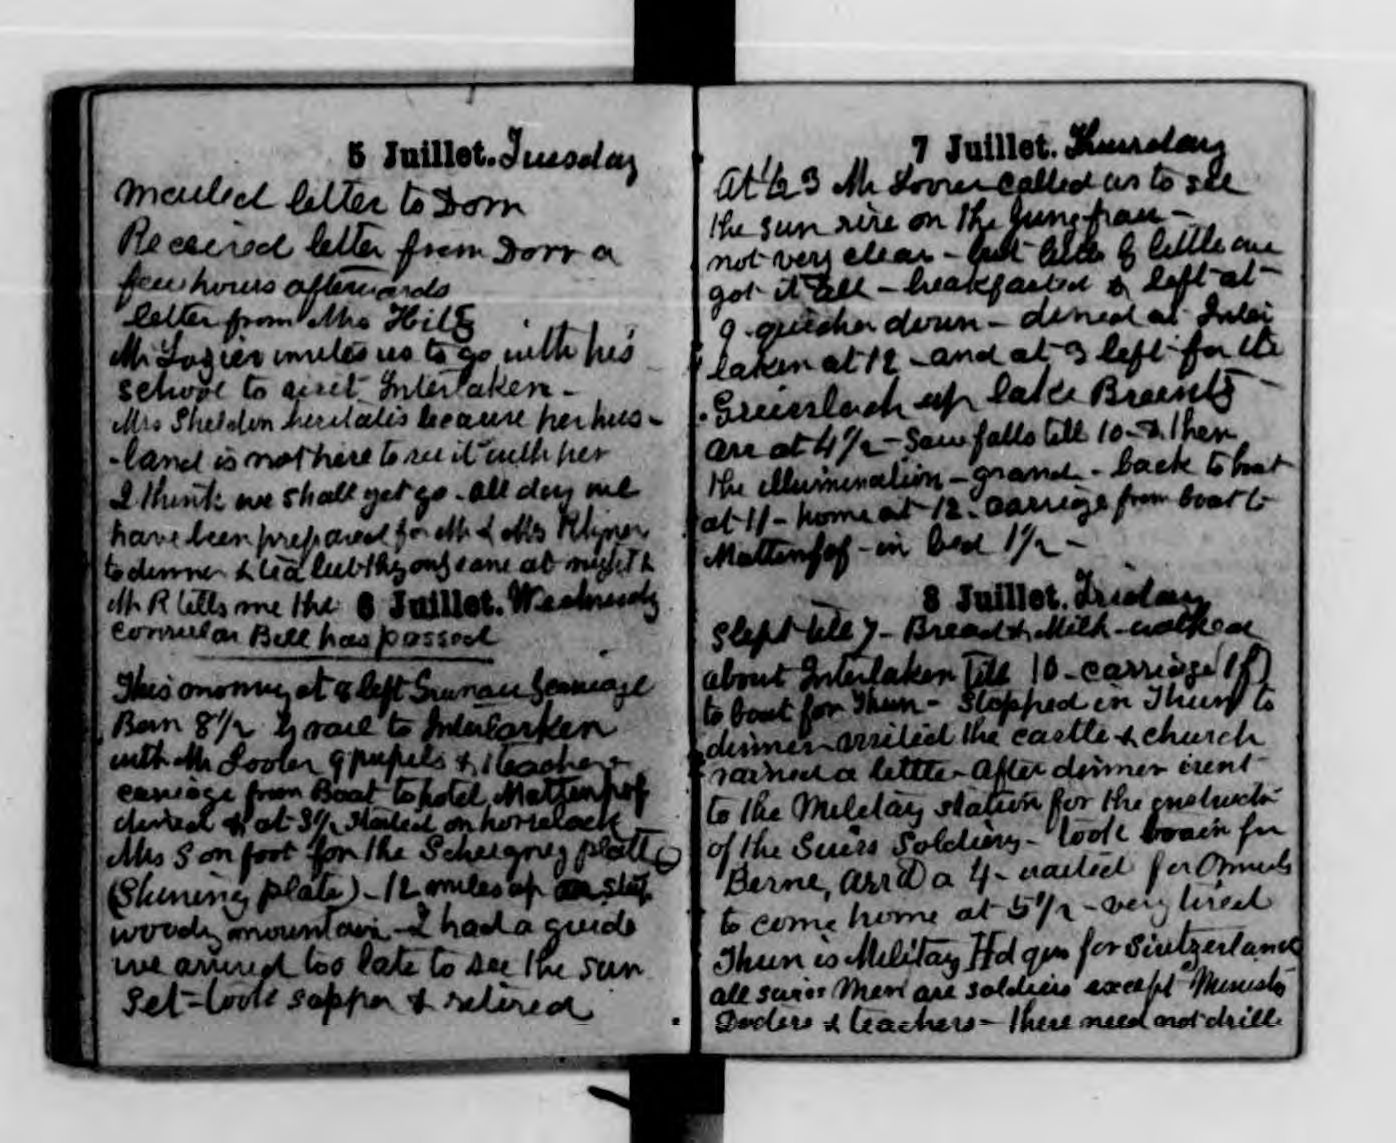 5 Juillet. Tuesday
Mailed letter to Dorr
Received letter from Dorr a
few hours afterwards
letter from Mrs Hilty
Mr Lozier invites us to go with his
school to visit Interlaken -
Mrs Sheldon hesitates because her hus-
-band is not here to see it with her
I think we shall yet go. all day we
have been prepared for Mr & Mrs
to dinner & tea but they only came at night &
Mr R tells me the
Consular Bill has passed
6 Juillet. Wednesday
This morning at 8 left by carriage
Bern 8 1/2 by rail to Interlarken
with Mr 9 pupils & 1 teacher -
carriage from Boat to hotel Mattenhof
dined & at 3 1/2 started on horseback
Mrs S on foot for the platte
(Shining plate) - 12 miles up
woody mountain - I had a guide
we arrived too late to see the sun
set - took supper & retired
7 Juillet. Thursday
At 1/2 3 Mr called us to see
the sun rise on the Jungfrau -
not very clear - but little by little we
got it all - breakfasted & left at
9 - quicker down - dined at Inter
laken at 12 - and at 3 left for the
up lake Brientz -
arr at 4 1/2 - Saw falls till 10 - & then
the illumination - grand - back to boat
at 11 - home at 12. carriage from boat to
Mattenhof - in bed 1 1/2 -
8 Juillet. Friday
Slept till 7 - Bread & Milk - walked
about Interlaken till 10 - carriage
to boat for Thun - Stopped in Thun to
dinner - visited the castle & church
rained a little - After dinner went
to the Military station for the
of the Swiss Soldiers - took train for
Berne, arrd a 4 - waited for Omnibs
to come home at 5 1/2 - very tired
Thun is Military Hd qrs for Switzerland
all swiss Men are soldiers except Ministers
Doctors & teachers - these need not drill